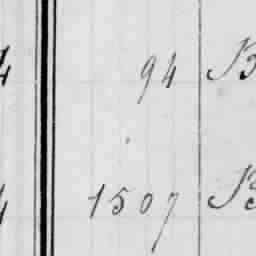 4 94 B
4 1507 B